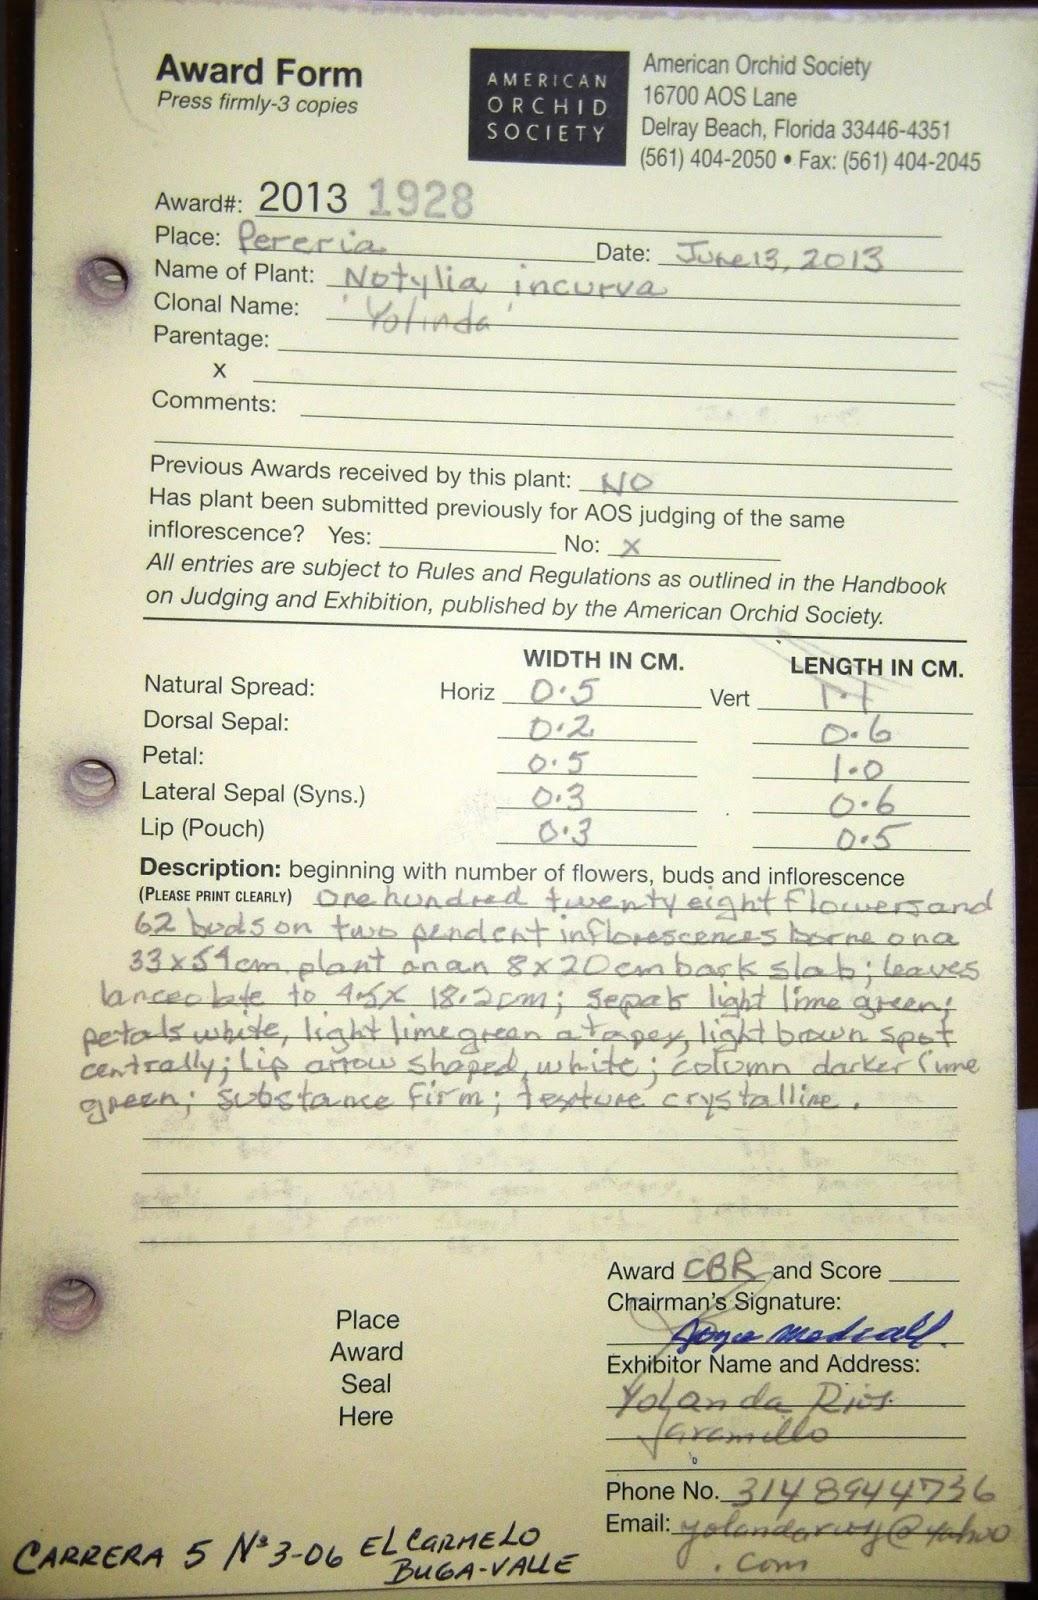 Award Form
Press firmly-3 copies
AMERICAN
ORCHID
SOCIETY
American Orchid Society
16700 AOS Lane
Delray Beach, Florida 33446-4351
(561) 404-2050 • Fax: (561) 404-2045
Award#: 2013 1928
Place: Pereria Date: June 13, 2013
Name of Plant: Notylia incurva
Clonal Name: 'Yolinda'
Parentage:
x
Comments:
Previous Awards received by this plant: NO
Has plant been submitted previously for AOS judging of the same
inflorescence? Yes: No: x
All entries are subject to Rules and Regulations as outlined in the Handbook
on Judging and Exhibition, published by the American Orchid Society.
WIDTH IN CM. LENGTH IN CM.
Natural Spread: Horiz 0.5 Vert 1.1
Dorsal Sepal: 0.2 0.6
Petal: 0.5 1.0
Lateral Sepal (Syns.) 0.3 0.6
Lip (Pouch) 0.3 0.5
Description: beginning with number of flowers, buds and inflorescence
(PLEASE PRINT CLEARLY) one hundred twenty eight flowers and
62 buds on two pendent inflorescences borne on a
33 x 54 cm. plant on an 8 x 20 cm bark slab; leaves
lanceolate to 4.5 x 18.2 cm; sepals light lime green;
petals white, light lime green at apex, light brown spot
centrally; lip arrow shaped, white; column darker lime
green; substance firm; texture crystalline.
Award CBR and Score
Chairman's Signature:
Joyce Medcalf
Exhibitor Name and Address:
Yolanda Rios
Jaramillo
Place
Award
Seal
Here
Phone No. 3148944736
Email: @yahoo
.com
CARRERA 5 Nº 3-06 EL CARMELO
BUGA-VALLE